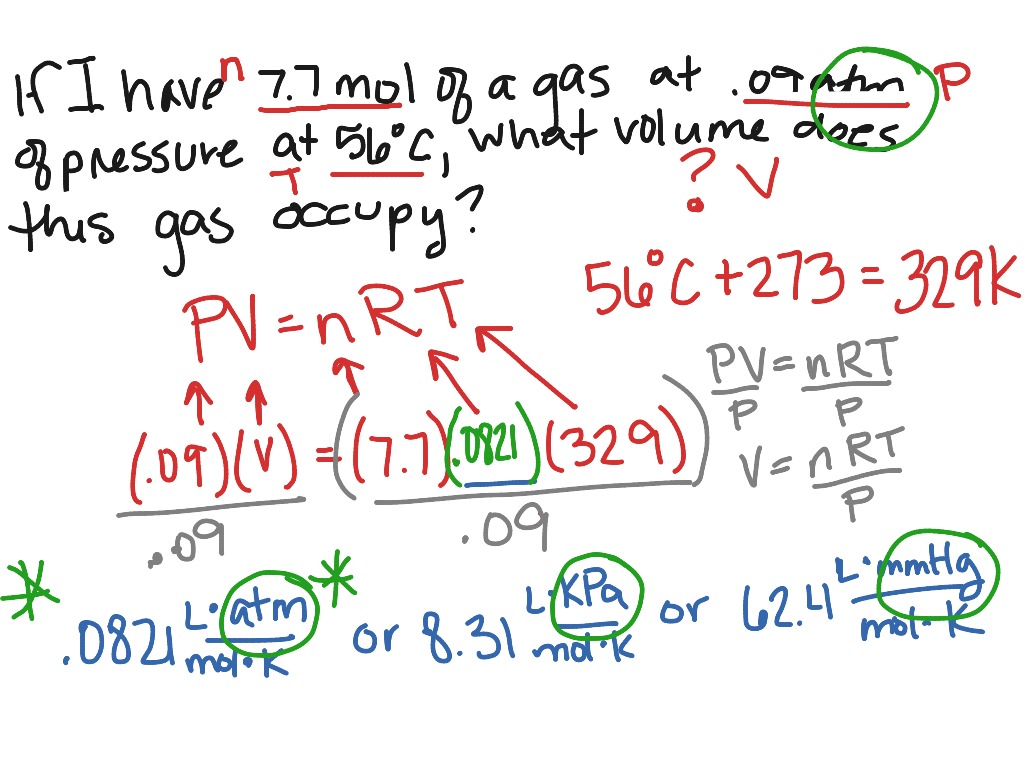 If I have n 7.7 mol of a gas at .09 atm P
of pressure at 56°C, what volume does
T ? V
this gas occupy?
56°C + 273 = 329K
PV = nRT
PV/P = nRT/P
(.09)(V) = ((7.7)(.0821)(329))
V = nRT/P
.09 .09
.0821 L·atm/mol·K or 8.31 L·KPa/mol·K or 62.4 L·mmHg/mol·K